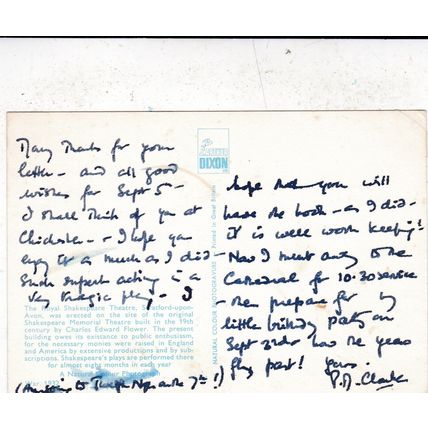 Many Thanks for your
letter - and all good
wishes for Sept 5 -
I shall think of you at
Chichester - I hope you
enjoy it as much as I did -
Such superb acting in a
very tragic play - I
The Royal Shakespeare Theatre, Stratford-upon-
Avon, was erected on the site of the original
Shakespeare Memorial Theatre built in the 19th
century by Charles Edward Flower. The present
building owes its existence to public enthusiasm,
for the necessary monies were raised in England
and America by extensive productions and by sub-
scriptions. Shakespeare's plays are performed there
for almost eight months in each year
A Natural Colour Photograph
DIXON
NATURAL COLOUR PHOTOGRAVURE
Printed in Great Britain
hope that you will
have the book - as I did -
it is well worth keeping!
Now I must away to the
Cathedral for 10.30 service
- then prepare for my
little birthday party on
Sept 2nd or how the years
fly past! yours
P.A. Clarke